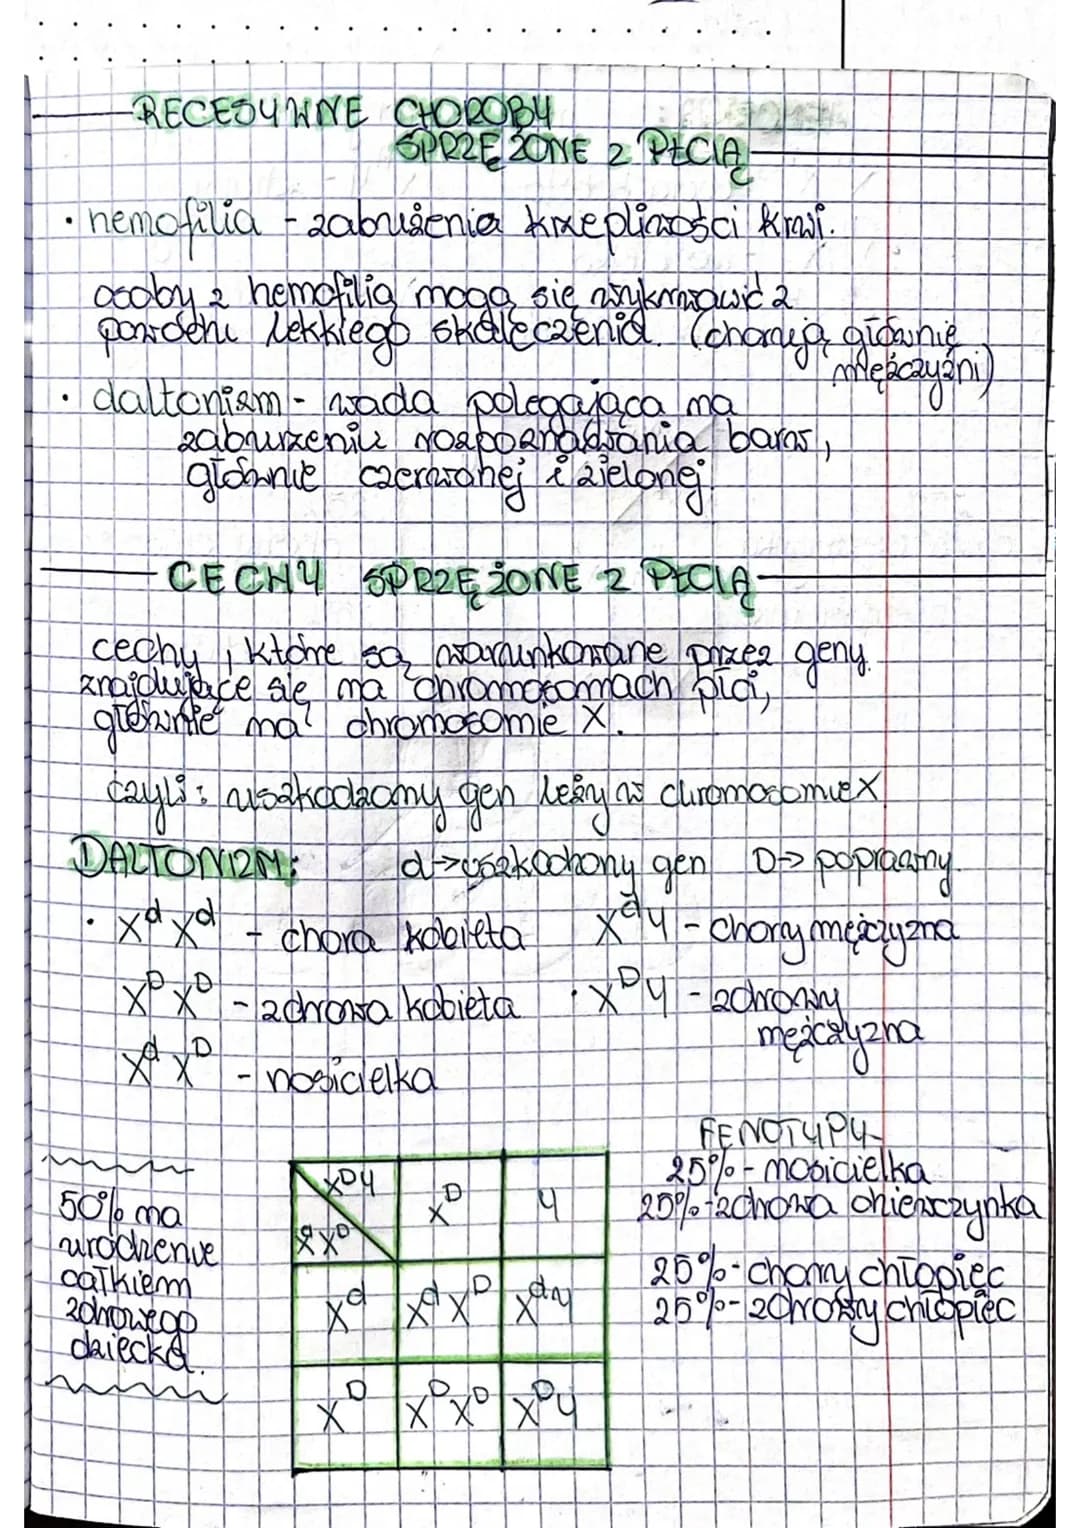 RECESYWNE CHOROBY
SPRZĘŻONE Z PŁCIĄ
• hemofilia - zaburzenia krzepliwości krwi.
osoby z hemofilią mogą się wykrwawić z
powodu lekkiego skaleczenia. (chorują głównie
mężczyźni)
• daltonizm - wada polegająca na
zaburzeniu rozpoznawania barw,
głównie czerwonej i zielonej.
CECHY SPRZĘŻONE Z PŁCIĄ
cechy, które są warunkowane przez geny
znajdujące się na chromosomach płci,
głównie na chromosomie X.
czyli: uszkodzony gen leży w chromosomie X
DALTONIZM: d → uszkodzony gen D → poprawny.
• X^d X^d - chora kobieta X^d Y - chory mężczyzna
X^D X^D - zdrowa kobieta • X^D Y - zdrowy
mężczyzna
X^d X^D - nosicielka
FENOTYPY
25% - nosicielka
25% - zdrowa dziewczynka
25% - chory chłopiec
25% - zdrowy chłopiec
50% na
urodzenie
całkiem
zdrowego
dziecka.
X^D Y X^D Y
X^d X^D
X^d X^d X^D X^d Y
X^D X^D X^D X^D Y